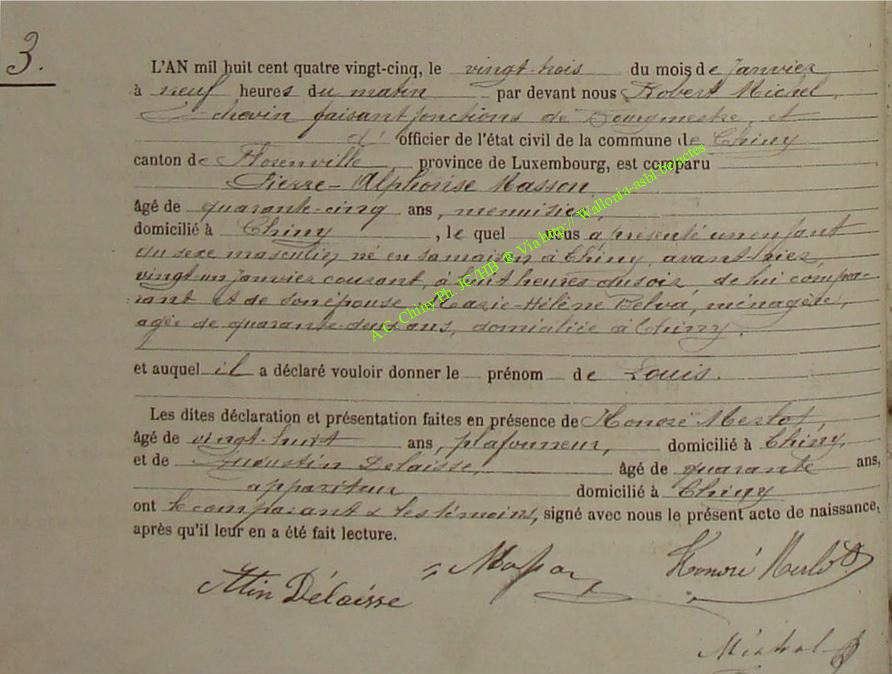 3.
L'AN mil huit cent quatre vingt-cinq, le vingt-trois du mois de Janvier
à neuf heures du matin par devant nous Robert Michel,
Echevin faisant fonctions de Bourgmestre, et
d' officier de l'état civil de la commune de Chiny
canton de Florenville, province de Luxembourg, est comparu
Pierre-Alphonse Masson,
âgé de quarante-cinq ans, menuisier
domicilié à Chiny, le quel nous a présenté un enfant
du sexe masculin né en sa maison à Chiny, avant-hier,
vingt un janvier courant, à huit heures du soir, de lui compa-
rant et de son épouse Marie-Hélène Delva, ménagère,
agée de quarante-deux ans, domiciliée à Chiny.
et auquel il a déclaré vouloir donner le prénom de Louis.
Les dites déclaration et présentation faites en présence de Honoré Merlot,
âgé de vingt-huit ans, plafonneur, domicilié à Chiny,
et de Augustin Delaisse, âgé de quarante ans,
appariteur domicilié à Chiny
ont le comparant & les témoins, signé avec nous le présent acte de naissance,
après qu'il leur en a été fait lecture.
Attin Délaisse Masson Honoré Merlot
Michel
A.C. Chiny Ph. JC HB ® Via http:// Wallonia-asbl